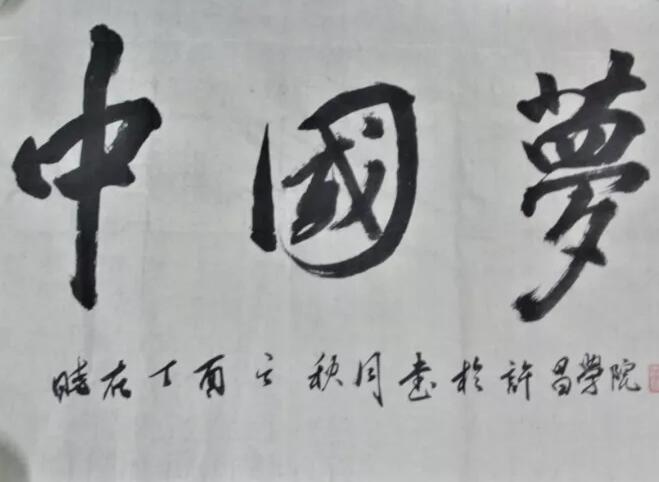 中國夢
時在丁酉之秋月書於許昌學院